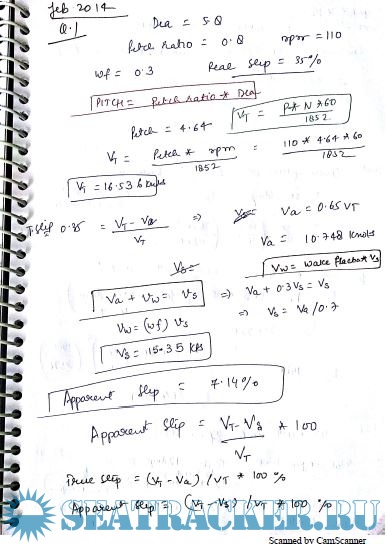 Feb 2014
Q.1
Dia = 5.8
Pitch Ratio = 0.8 rpm = 110
wf = 0.3 Real Slip = 35%
PITCH = Pitch ratio * Dia
Pitch = 4.64
VT = P * N * 60 / 1852
VT = Pitch * rpm / 1852 = 110 * 4.64 * 60 / 1852
VT = 16.536 knots
T.slip 0.35 = VT - Va / VT ⇒ Va = 0.65 VT
Va = 10.748 knots
Vw = wake fraction * Vs
Va + Vw = Vs ⇒ Va + 0.3 Vs = Vs
Vw = (wf) Vs ⇒ Vs = Va / 0.7
Vs = 15.35 kts
Apparent Slip = 7.14%
Apparent Slip = VT - Vs / VT * 100
True slip = (VT - Va) / VT * 100 %
Apparent Slip = (VT - Vs) / VT * 100 %
SEATRACKER.RU
Scanned by CamScanner